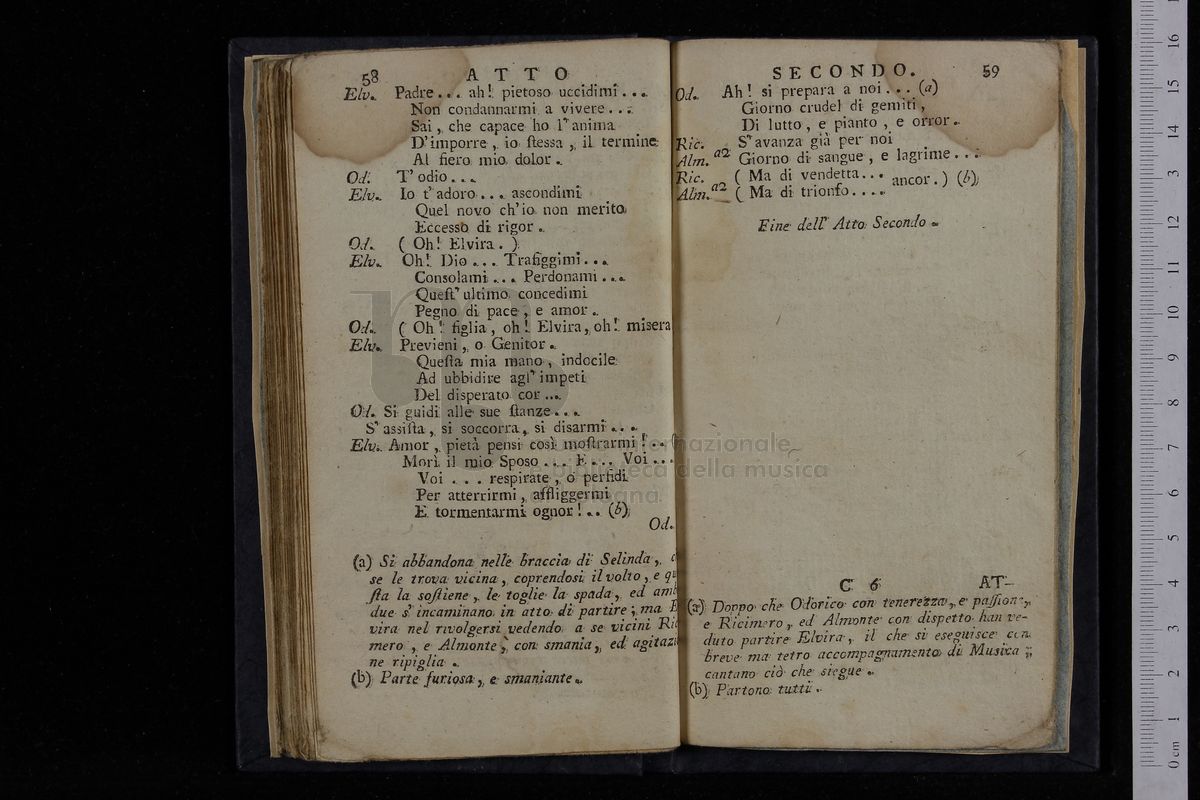 58 ATTO
Elv. Padre... ah! pietoso uccidimi...
Non condannarmi a vivere...
Sai, che capace ho l'anima
D'imporre, io ſteſſa, il termine
Al fiero mio dolor.
Od. T'odio...
Elv. Io t'adoro... ascondimi
Quel novo ch'io non merito
Eccesso di rigor.
Od. (Oh! Elvira.)
Elv. Oh! Dio... Trafiggimi...
Consolami... Perdonami...
Queſt'ultimo concedimi
Pegno di pace, e amor.
Od. (Oh! figlia, oh! Elvira, oh! misera
Elv. Previeni, o Genitor.
Queſta mia mano, indocile
Ad ubbidire agl'impeti
Del disperato cor...
Od. Si guidi alle sue ſtanze...
S'assiſta, si soccorra, si disarmi...
Elv. Amor, pietà pensi così moſtrarmi!..
Morì il mio Sposo... E... Voi...
Voi... respirate, o perfidi
Per atterrirmi, affliggermi
E tormentarmi ognor!.. (b)
Od.
(a) Si abbandona nelle braccia di Selinda,
se le trova vicina, coprendosi il volto, e
ſta la soſtiene, le toglie la spada, ed
due s'incaminano in atto di partire; ma
vira nel rivolgersi vedendo a se vicini
mero, e Almonte, con smania, ed agitazi
ne ripiglia.
(b) Parte furiosa, e smaniante.
SECONDO. 59
Od. Ah! si prepara a noi... (a)
Giorno crudel di gemiti,
Di lutto, e pianto, e orror.
Ric. Alm. a2 S'avanza già per noi
Giorno di sangue, e lagrime...
Ric. (Ma di vendetta...
Alm. a2 (Ma di trionfo.... ancor.) (b)
Fine dell'Atto Secondo.
C 6 AT-
(a) Doppo che Odorico con tenerezza, e paſſione,
e Ricimero, ed Almonte con dispetto han ve-
duto partire Elvira, il che si eseguisce con
breve ma tetro accompagnamento di Musica;
cantano ciò che siegue.
(b) Partono tutti.
internazionale
e biblioteca della musica
di Bologna
16
15
14
13
12
11
10
9
8
7
6
5
4
3
2
1
0 cm